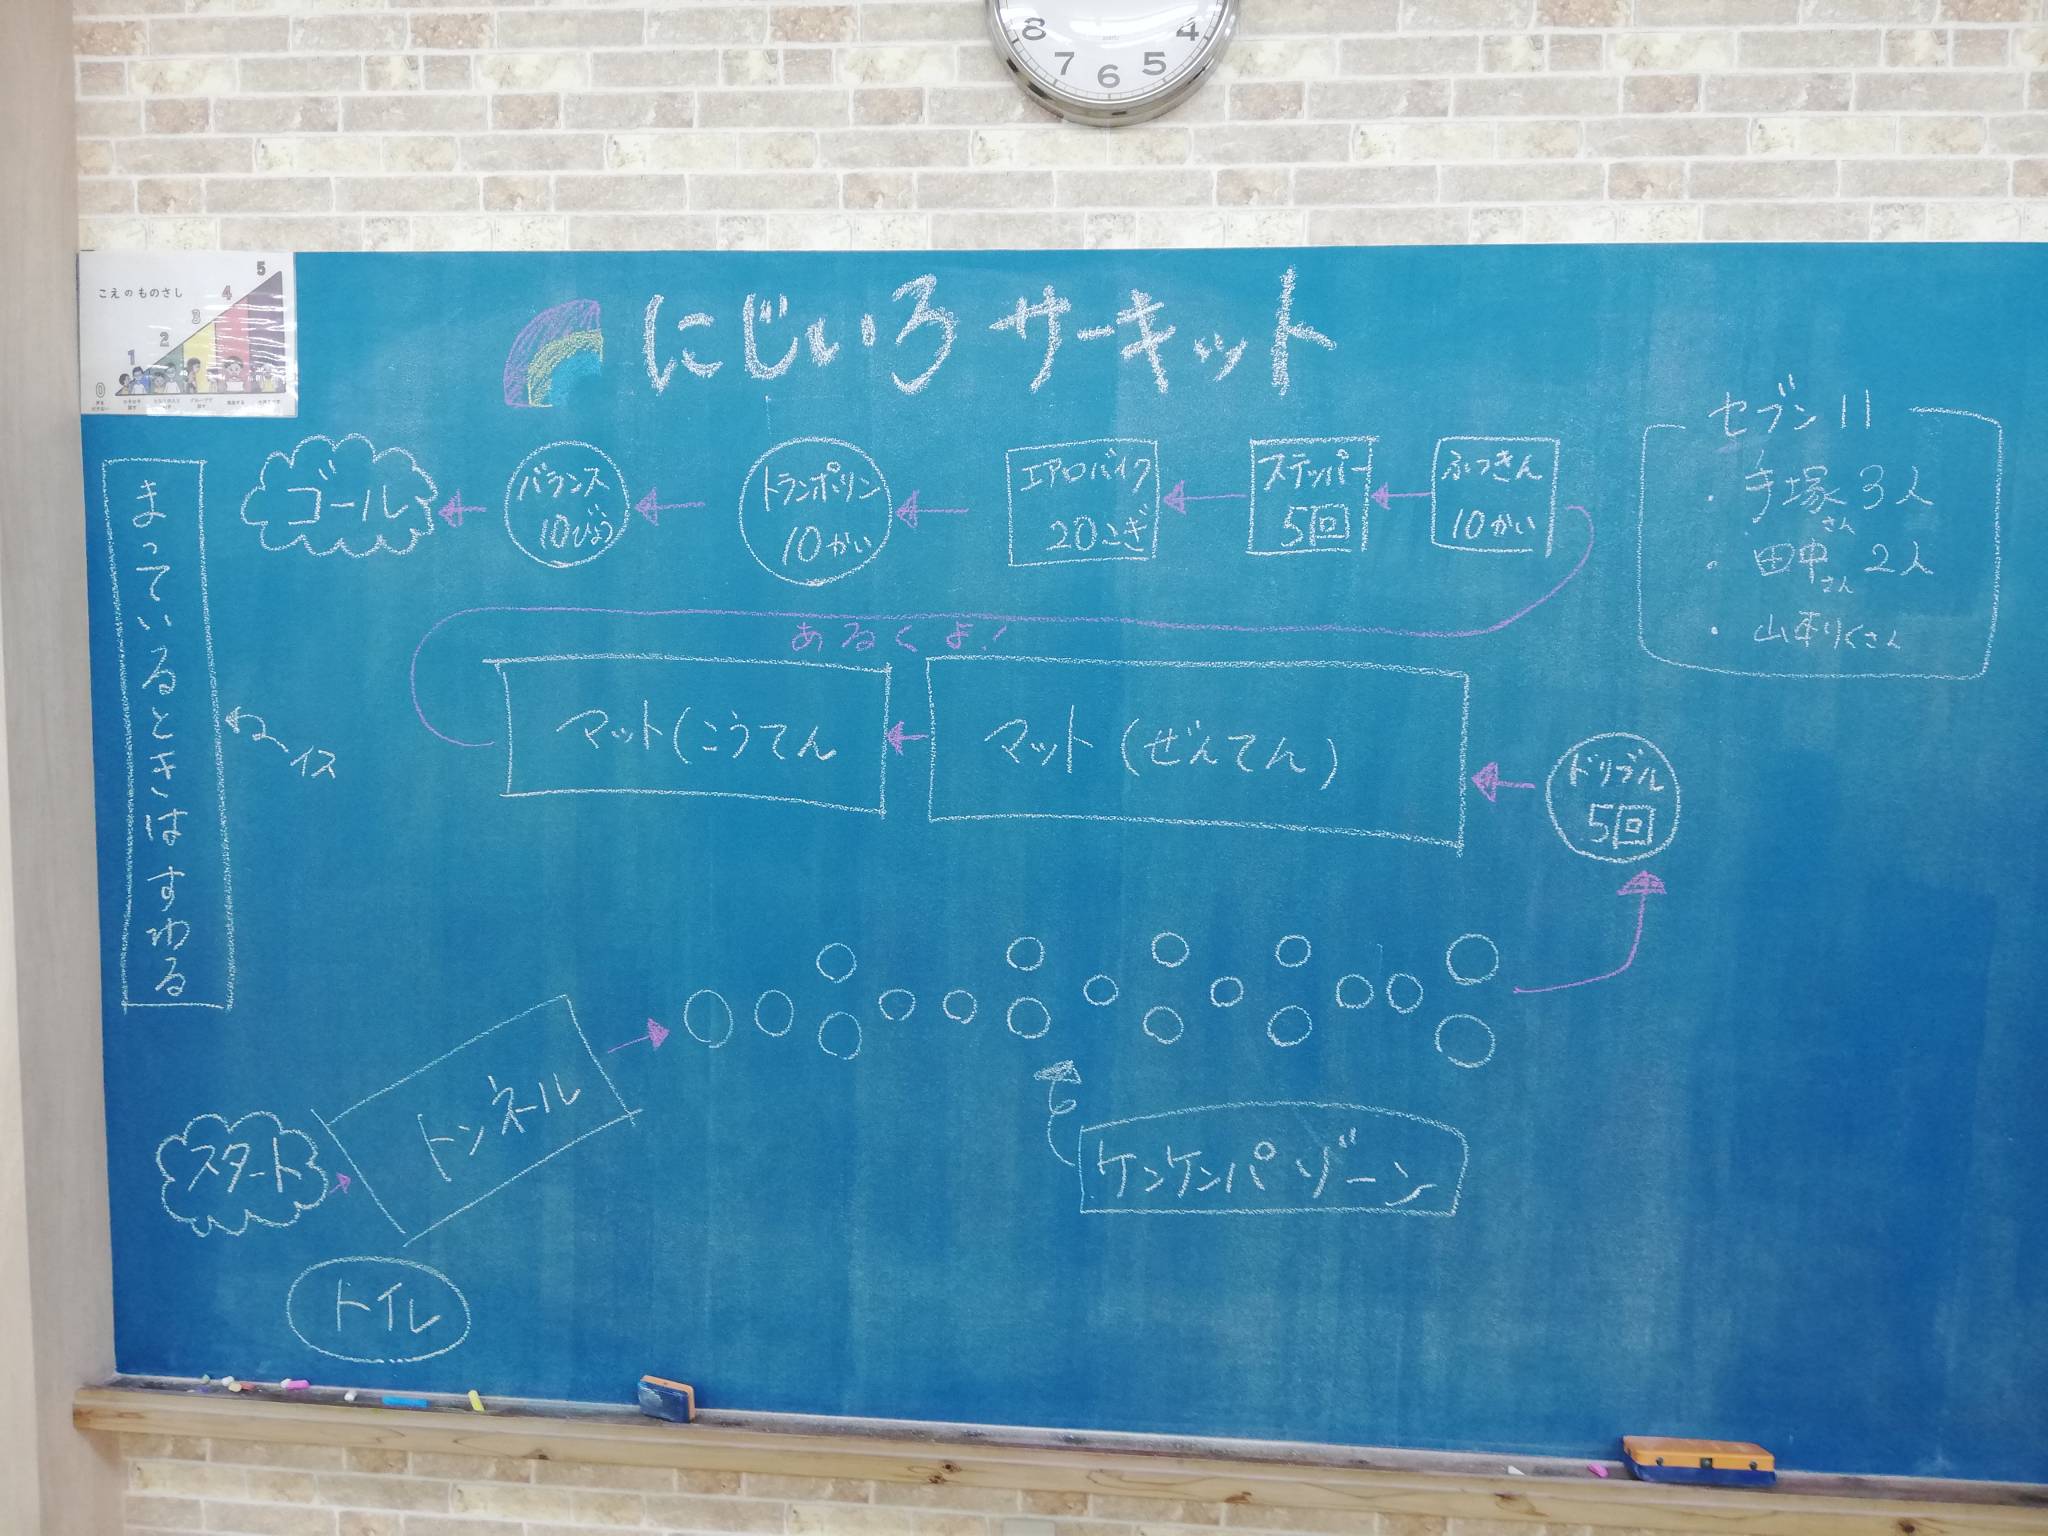 8 7 6 5 4
こえのものさし
0 1 2 3 4 5
にじいろサーキット
セブン11
・手塚さん3人
・田中さん2人
・山本りくさん
ゴール
バランス
10びょう
トランポリン
10かい
エアロバイク
20こぎ
ステッパー
5回
ふっきん
10かい
あるくよ!
まっているときはすわる
イス
マット(こうてん
マット(ぜんてん)
ドリブル
5回
スタート
トンネル
ケンケンパゾーン
トイレ